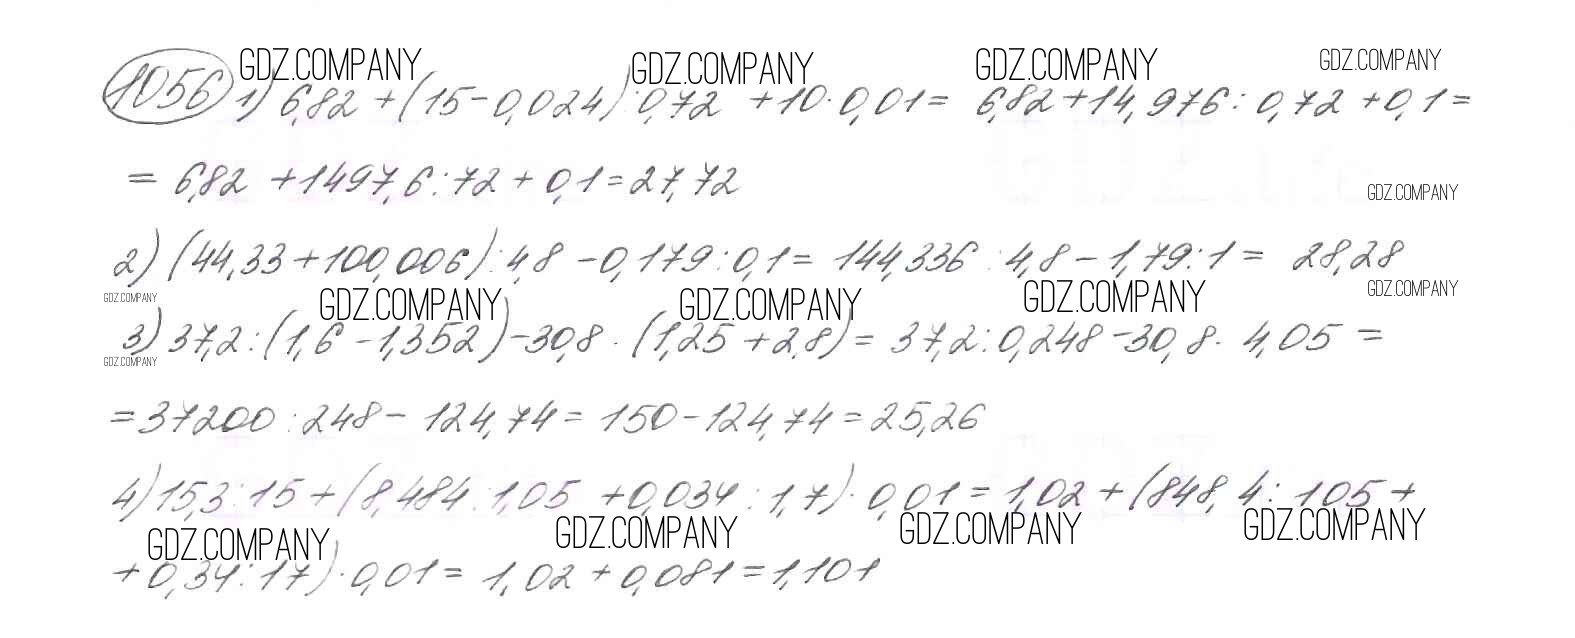 GDZ.COMPANY GDZ.COMPANY GDZ.COMPANY GDZ.COMPANY
1056 1) 6,82 + (15 - 0,024) : 0,72 + 10 · 0,01 = 6,82 + 14,976 : 0,72 + 0,1 =
= 6,82 + 1497,6 : 72 + 0,1 = 27,72
GDZ.COMPANY
2) (44,33 + 100,006) : 4,8 - 0,179 : 0,1 = 144,336 : 4,8 - 1,79 : 1 = 28,28
GDZ.COMPANY GDZ.COMPANY GDZ.COMPANY GDZ.COMPANY GDZ.COMPANY
3) 37,2 : (1,6 - 1,352) - 30,8 · (1,25 + 2,8) = 37,2 : 0,248 - 30,8 · 4,05 =
GDZ.COMPANY
= 37200 : 248 - 124,74 = 150 - 124,74 = 25,26
4) 15,3 : 15 + (8,484 : 1,05 + 0,034 : 1,7) · 0,01 = 1,02 + (848,4 : 105 +
GDZ.COMPANY GDZ.COMPANY GDZ.COMPANY GDZ.COMPANY
+ 0,34 : 17) · 0,01 = 1,02 + 0,081 = 1,101